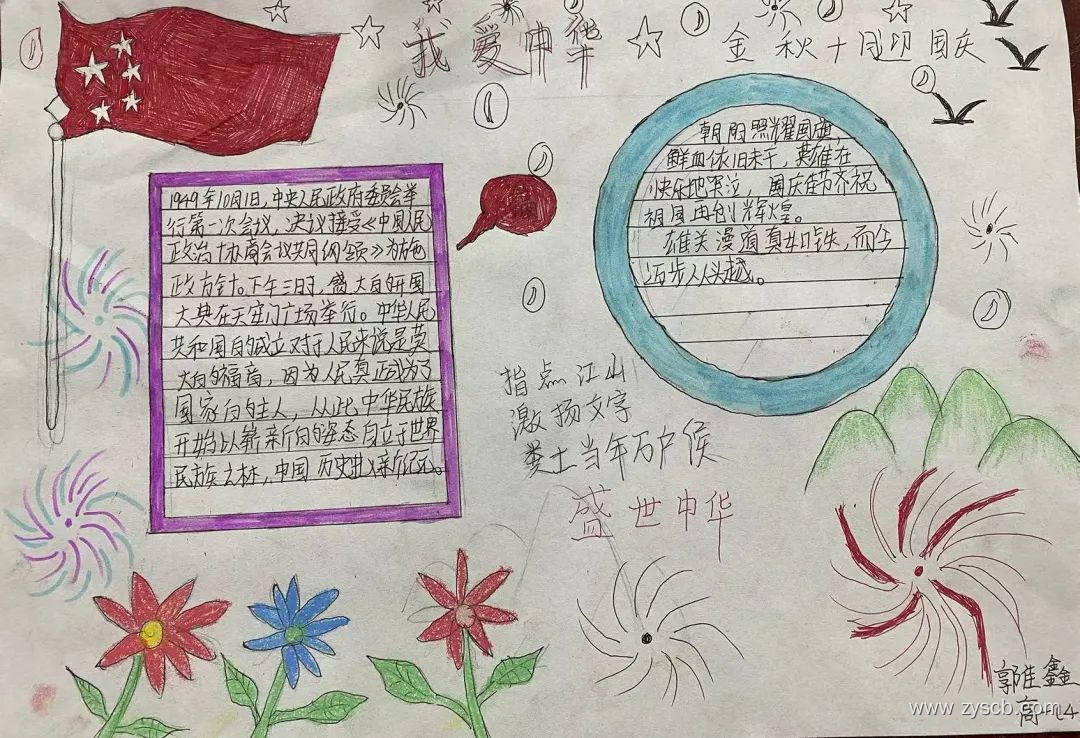 我爱中华
金秋十国迎国庆
1949年10月1日,中央人民政府委员会举
行第一次会议,决议接受《中国人民
政治协商会议共同纲领》为施
政方针。下午三时,盛大的开国
大典在天安门广场举行。中华人民
共和国的成立对于人民来说是莫
大的福音,因为人民真正成为了
国家的主人,从此中华民族
开始以崭新的姿态自立于世界
民族之林,中国历史
朝阳照耀国
鲜血依旧未干,英雄在
快乐地哭泣,国庆佳节齐祝
祖国再创辉煌。
雄关漫道真如铁,而今
迈步从头越。
指点江山
激扬文字
粪土当年万户侯
盛世中华
郭佳鑫
高一4
www.zyscb.com